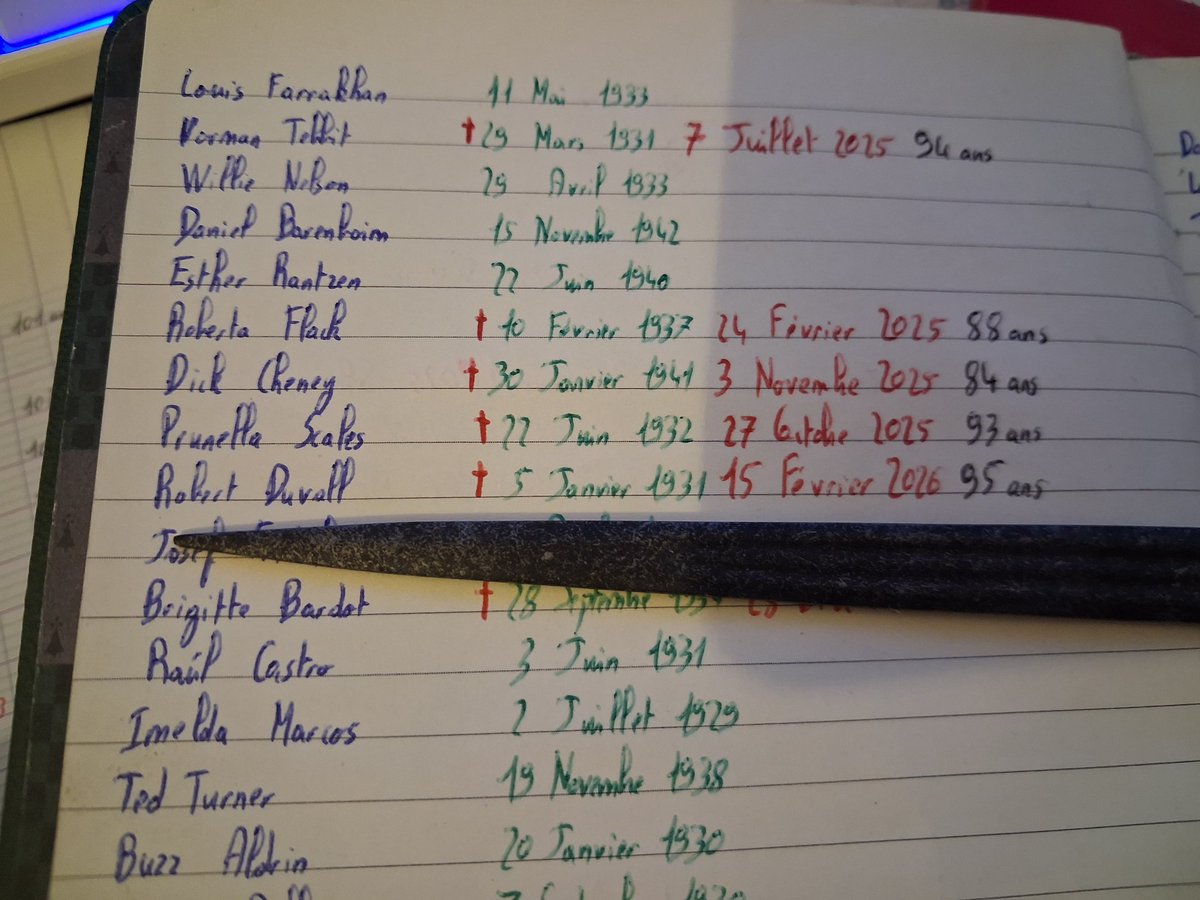 Louis Farrakhan 11 Mai 1933
Norman Tebbit † 29 Mars 1931 7 Juillet 2025 94 ans
Willie Nelson 29 Avril 1933
Daniel Barenboim 15 Novembre 1942
Esther Rantzen 22 Juin 1940
Roberta Flack † 10 Février 1937 24 Février 2025 88 ans
Dick Cheney † 30 Janvier 1941 3 Novembre 2025 84 ans
Prunella Scales † 22 Juin 1932 27 Octobre 2025 93 ans
Robert Duvall † 5 Janvier 1931 15 Février 2026 95 ans
Brigitte Bardot † 28 Septembre
Raúl Castro 3 Juin 1931
Imelda Marcos 2 Juillet 1929
Ted Turner 19 Novembre 1938
Buzz Aldrin 20 Janvier 1930